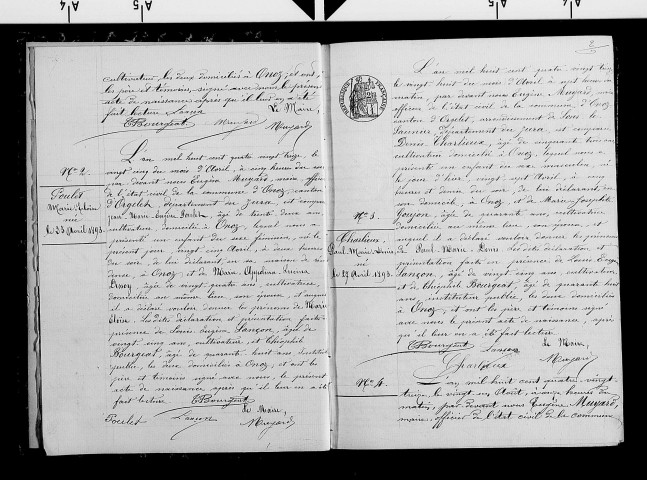 cultivateur, les deux domiciliés à Onoz, et ont,
le père et témoins, signé avec nous le présent
acte de naissance après qu'il leur en a été
fait lecture. Lançon Le Maire,
CBourgeat Muyard
N° 2.
Poulet
né
le 25 avril 1893.
L'an mil huit cent quatre vingt treize, le
vingt cinq du mois d'Avril, à cinq heures du
soir, devant nous Eugène Muyard, maire officier
de l'état civil de la commune d'Onoz, canton
d'Orgelet, département du Jura, est comparu
Jean Marie Eugène Poulet, âgé de trente deux ans
cultivateur, domicilié à Onoz, lequel nous a
présenté un enfant du sexe féminin, né le
présent jour vingt cinq Avril, à heures
du soir, de lui déclarant en sa maison de rési
dence, à Onoz, et de Marie
âgée de vingt quatre ans, cultivateur,
domiciliée au même lieu, son épouse, et auquel
il a déclaré vouloir donner les prénoms de Marie
Les dite déclaration et présentation faites
présence de Louis Eugène Lançon, âgé de
vingt cinq ans, cultivateur, et Théophile
Bourgeat, âgé de quarante huit ans, instituteur
public, les deux domiciliés à Onoz, et ont les
père et témoins signé avec nous, le présent
acte de naissance après qu'il leur en a été
fait lecture. CBourgeat
Le Maire,
Poulet Lançon Muyard
2
L'an mil huit cent quatre vingt treize
le vingt huit du mois d'Avril à sept heures du
matin, par devant nous Eugène Muyard, maire
officier de l'état civil de la commune d'Onoz
canton d'Orgelet, arrondissement de Lons le
Saunier, département du Jura, est comparu
Denis Charlieux, âgé de cinquante ans
cultivateur domicilié à Onoz, lequel nous a
présenté un enfant du sexe masculin, né
le jour d'hier, vingt sept Avril, à cinq
heures et demie du soir, de lui déclarant, en
son domicile, à Onoz, et de Marie Josephte
Goujon, âgée de quarante ans, cultivateur
domiciliée au même lieu, son épouse, et
auquel il a déclaré vouloir donner les prénoms
de Paul Marie Denis. Les dite déclaration et
présentation faite en présence de Louis Eugène
Lançon, âgé de vingt cinq ans, cultivateur
et Théophile Bourgeat, âgé de quarante huit
ans, instituteur public, les deux domiciliés
à Onoz, et ont les père et témoins signé
avec nous le présent acte de naissance, après
qu'il leur en a été fait lecture.
CBourgeat Lançon Le Maire,
Charlieux Muyard
N° 3.
Charlieux
Paul Marie Denis
né
le 27 Avril 1893.
N° 4.
L'an mil huit cent quatre vingt
treize, le vingt Avril, à onze heures du
matin, par devant nous Eugène Muyard,
maire, officier de l'état civil de la commune